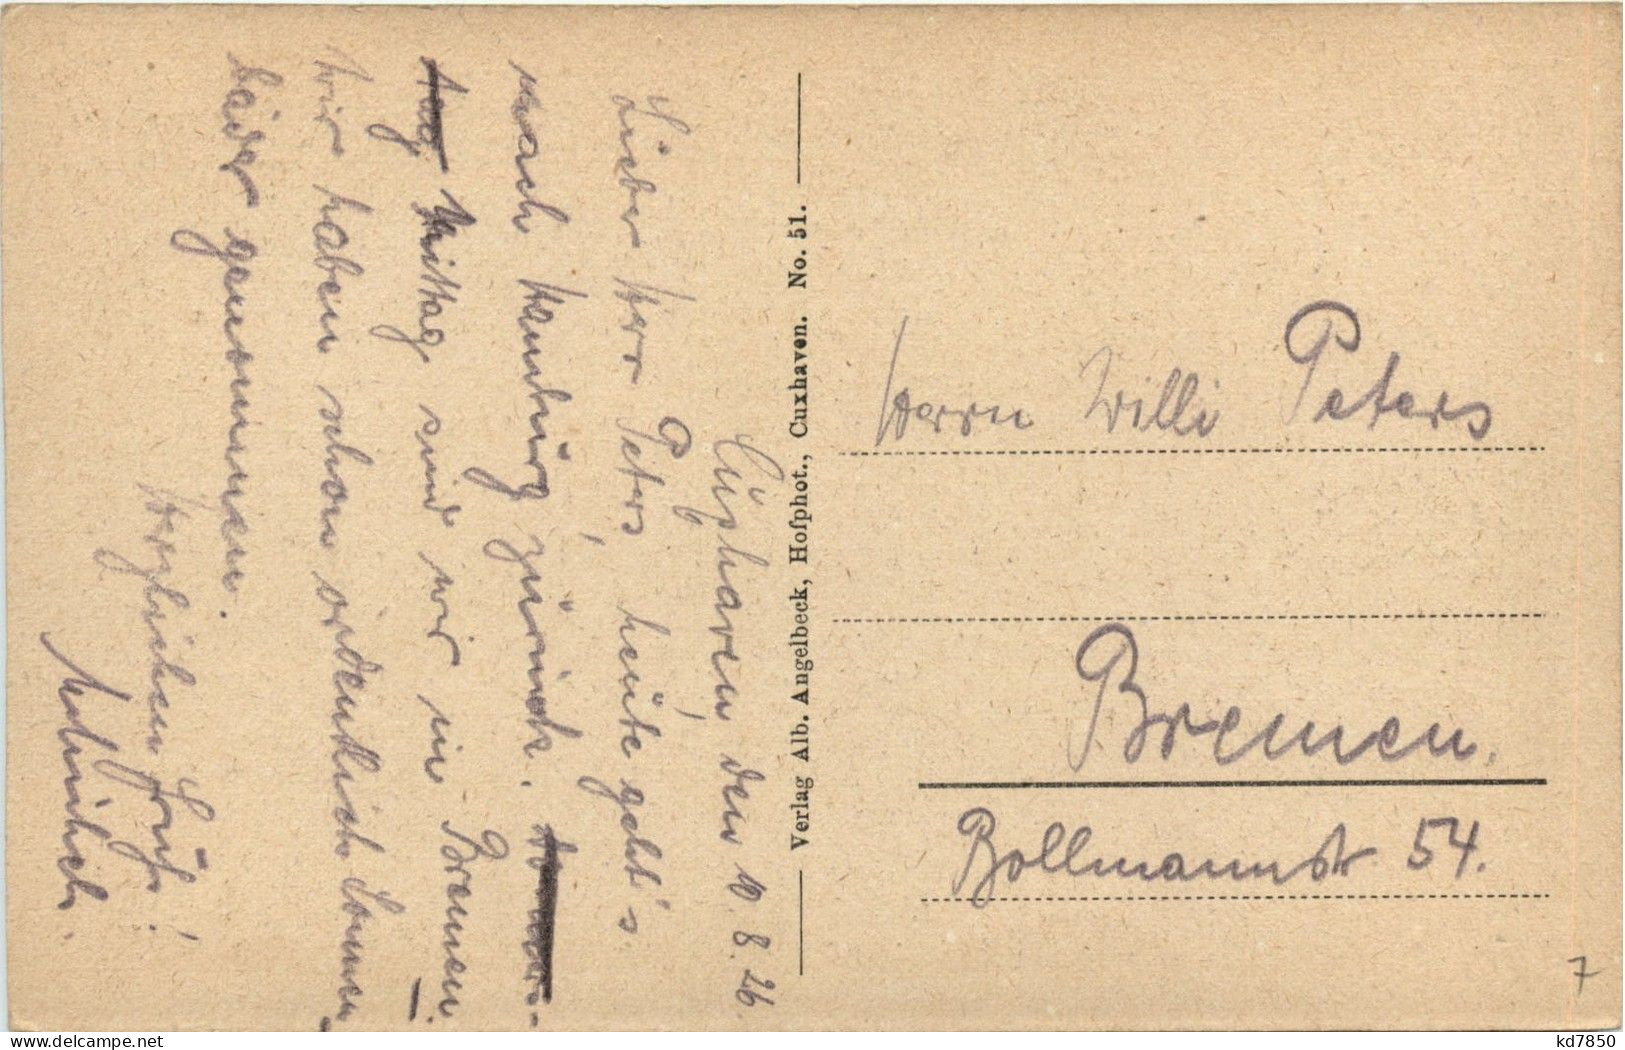 Cuxhaven, den 10.8.26.
Lieber Herr Peters, heute geht's
nach Hamburg zurück. Donners-
tag Mittag sind wir in Bremen.
Wir haben schon ordentlich Sonnen-
bäder genommen.
Herzlichen Gruß!
Verlag Alb. Angelbeck, Hofphot., Cuxhaven. No. 51.
Herrn Willi Peters
Bremen.
Bollmannstr. 54.
7
kd7850